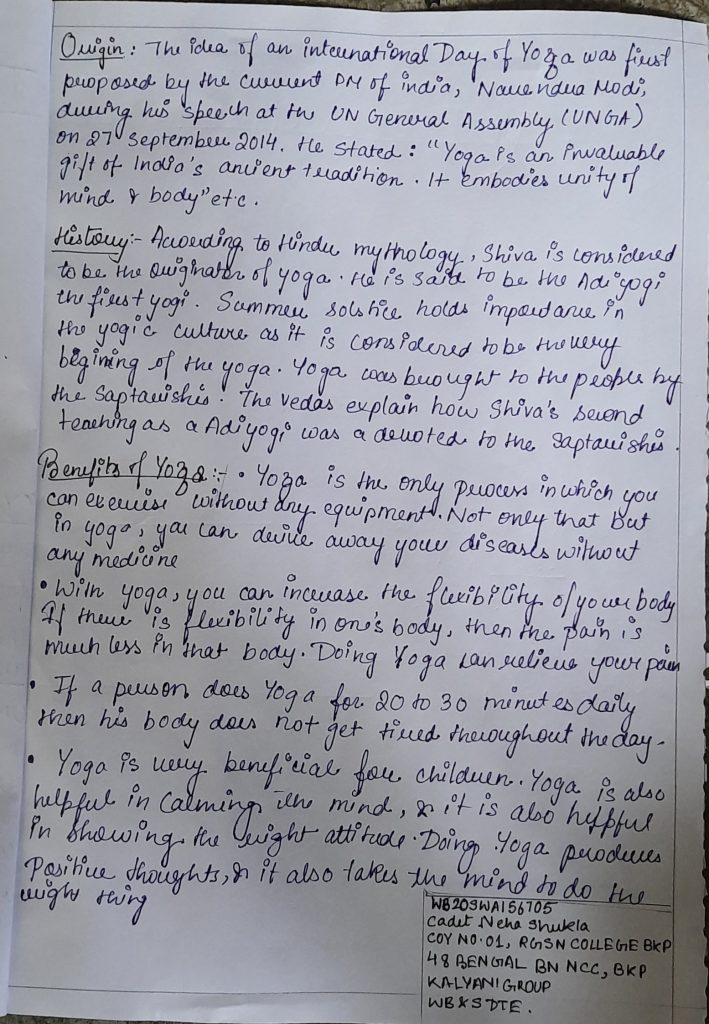 Origin : The idea of an international Day of Yoga was first
proposed by the current PM of india, Narendra Modi,
during his speech at the UN General Assembly (UNGA)
on 27 September 2014. He stated : "Yoga is an invaluable
gift of India's ancient tradition. It embodies unity of
mind & body" etc.
History:- According to Hindu mythology, Shiva is considered
to be the originator of yoga. He is said to be the Adiyogi
the first yogi. Summer solstice holds importance in
the yogic culture as it is considered to be the very
begining of the yoga. Yoga was brought to the people by
the Saptarishis. The vedas explain how Shiva's second
teaching as a Adiyogi was a devoted to the Saptarishis.
Benefits of Yoga:- • Yoga is the only process in which you
can exercise without any equipment. Not only that but
in yoga, you can drive away your diseases without
any medicine
• With yoga, you can increase the flexibility of your body
If there is flexibility in one's body, then the pain is
much less in that body. Doing Yoga can relieve your pain
• If a person does Yoga for 20 to 30 minutes daily
then his body does not get tired throughout the day.
• Yoga is very beneficial for children. Yoga is also
helpful in calming the mind, & it is also helpful
in showing the right attitude. Doing Yoga produces
Positive thoughts, & it also takes the mind to do the
right thing
WB20SWA156705
Cadet Neha Shukla
COY NO.01, RGSN COLLEGE BKP
48 BENGAL BN NCC, BKP
KALYANI GROUP
WB&S DTE.